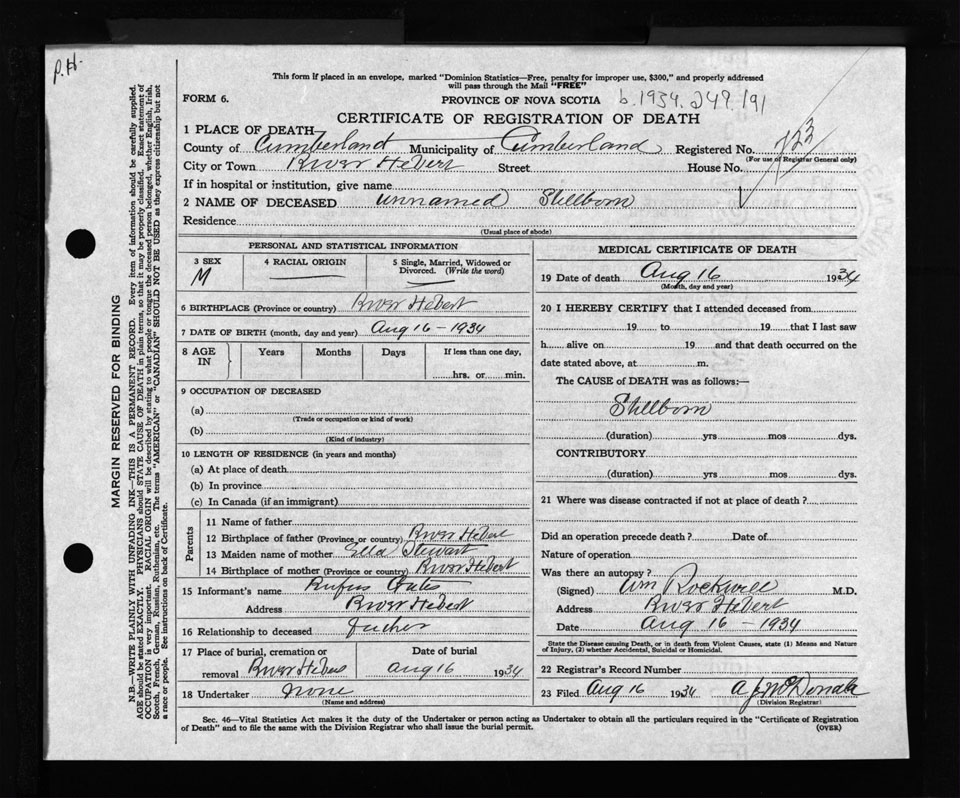 P.H.
This form if placed in an envelope, marked "Dominion Statistics—Free, penalty for improper use, $300," and properly addressed
will pass through the Mail "FREE"
FORM 6.
PROVINCE OF NOVA SCOTIA b.1934.249.191
CERTIFICATE OF REGISTRATION OF DEATH
1 PLACE OF DEATH—
County of Cumberland Municipality of Cumberland Registered No.
(For use of Registrar General only)
City or Town River Hebert Street House No.
If in hospital or institution, give name
2 NAME OF DECEASED unnamed Stillborn
Residence
(Usual place of abode)
PERSONAL AND STATISTICAL INFORMATION
3 SEX M
4 RACIAL ORIGIN
5 Single, Married, Widowed or
Divorced. (Write the word)
6 BIRTHPLACE (Province or country) River Hebert
7 DATE OF BIRTH (month, day and year) Aug 16 - 1934
8 AGE IN Years Months Days If less than one day,
hrs. or min.
9 OCCUPATION OF DECEASED
(a)
(Trade or occupation or kind of work)
(b)
(Kind of industry)
10 LENGTH OF RESIDENCE (in years and months)
(a) At place of death
(b) In province
(c) In Canada (if an immigrant)
Parents
11 Name of father
12 Birthplace of father (Province or country) River Hebert
13 Maiden name of mother Ella Stewart
14 Birthplace of mother (Province or country) River Hebert
15 Informant's name Rufus
Address River Hebert
16 Relationship to deceased father
17 Place of burial, cremation or Date of burial
removal River Hebert Aug 16 1934
18 Undertaker none
(Name and address)
MEDICAL CERTIFICATE OF DEATH
19 Date of death Aug 16 1934
(Month, day and year)
20 I HEREBY CERTIFY that I attended deceased from
19 to 19 that I last saw
h alive on 19 and that death occurred on the
date stated above, at m.
The CAUSE of DEATH was as follows:—
Stillborn
(duration) yrs mos dys.
CONTRIBUTORY
(duration) yrs mos dys.
21 Where was disease contracted if not at place of death?
Did an operation precede death? Date of
Nature of operation
Was there an autopsy?
(Signed) Wm Rockwell M.D.
Address River Hebert
Date Aug 16 - 1934
State the Disease causing Death, or in death from Violent Causes, state (1) Means and Nature
of Injury, (2) whether Accidental, Suicidal or Homicidal.
22 Registrar's Record Number
23 Filed Aug 16 1934 A J McDonald
(Division Registrar)
Sec. 46—Vital Statistics Act makes it the duty of the Undertaker or person acting as Undertaker to obtain all the particulars required in the "Certificate of Registration
of Death" and to file the same with the Division Registrar who shall issue the burial permit. (OVER)
MARGIN RESERVED FOR BINDING
N.B.—WRITE PLAINLY WITH UNFADING INK—THIS IS A PERMANENT RECORD. Every item of information should be carefully supplied.
AGE should be stated EXACTLY. PHYSICIANS should STATE CAUSE OF DEATH in plain terms, so that it may be properly classified. Exact statement of
OCCUPATION is very important. RACIAL ORIGIN will be described by stating to what people or tongue the deceased person belonged, whether English, Irish,
Scotch, French, German, Russian, Ruthenian, etc. The terms "AMERICAN" or "CANADIAN" SHOULD NOT BE USED as they express citizenship but not
a race or people. See instructions on back of Certificate.